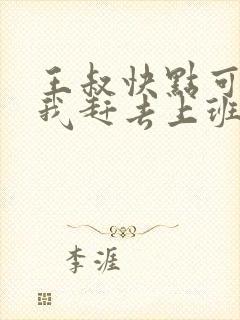 王叔快點可
我赶去上班
李涯